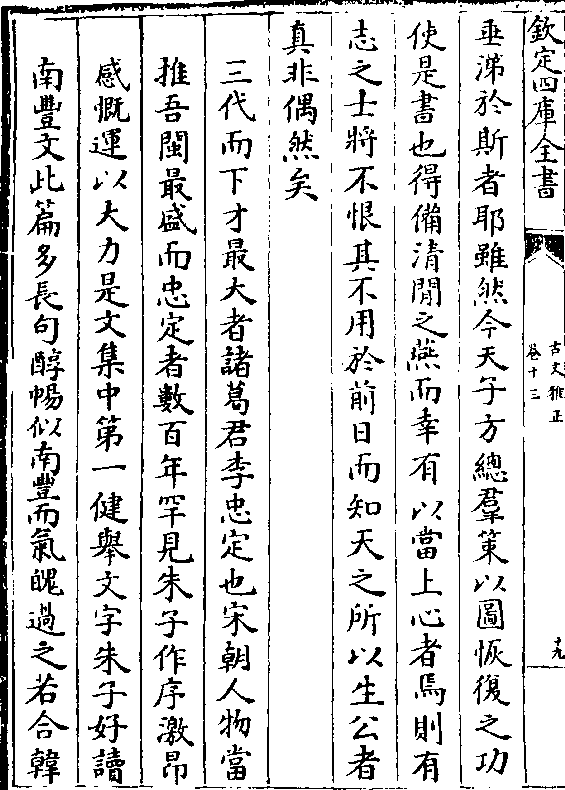 欽定四庫全書
古文雅正
卷十三
十九
垂涕於斯者耶雖然今天子方總羣策以圖恢復之功
使是書也得備清閒之燕而幸有以當上心者焉則有
志之士將不恨其不用於前日而知天之所以生公者
真非偶然矣
三代而下才最大者諸葛君李忠定也宋朝人物當
推吾閩最盛而忠定者數百年罕見朱子作序激昂
感慨運以大力是文集中第一健舉文字朱子好讀
南豐文此篇多長句醇暢似南豐而氣魄過之若合韓